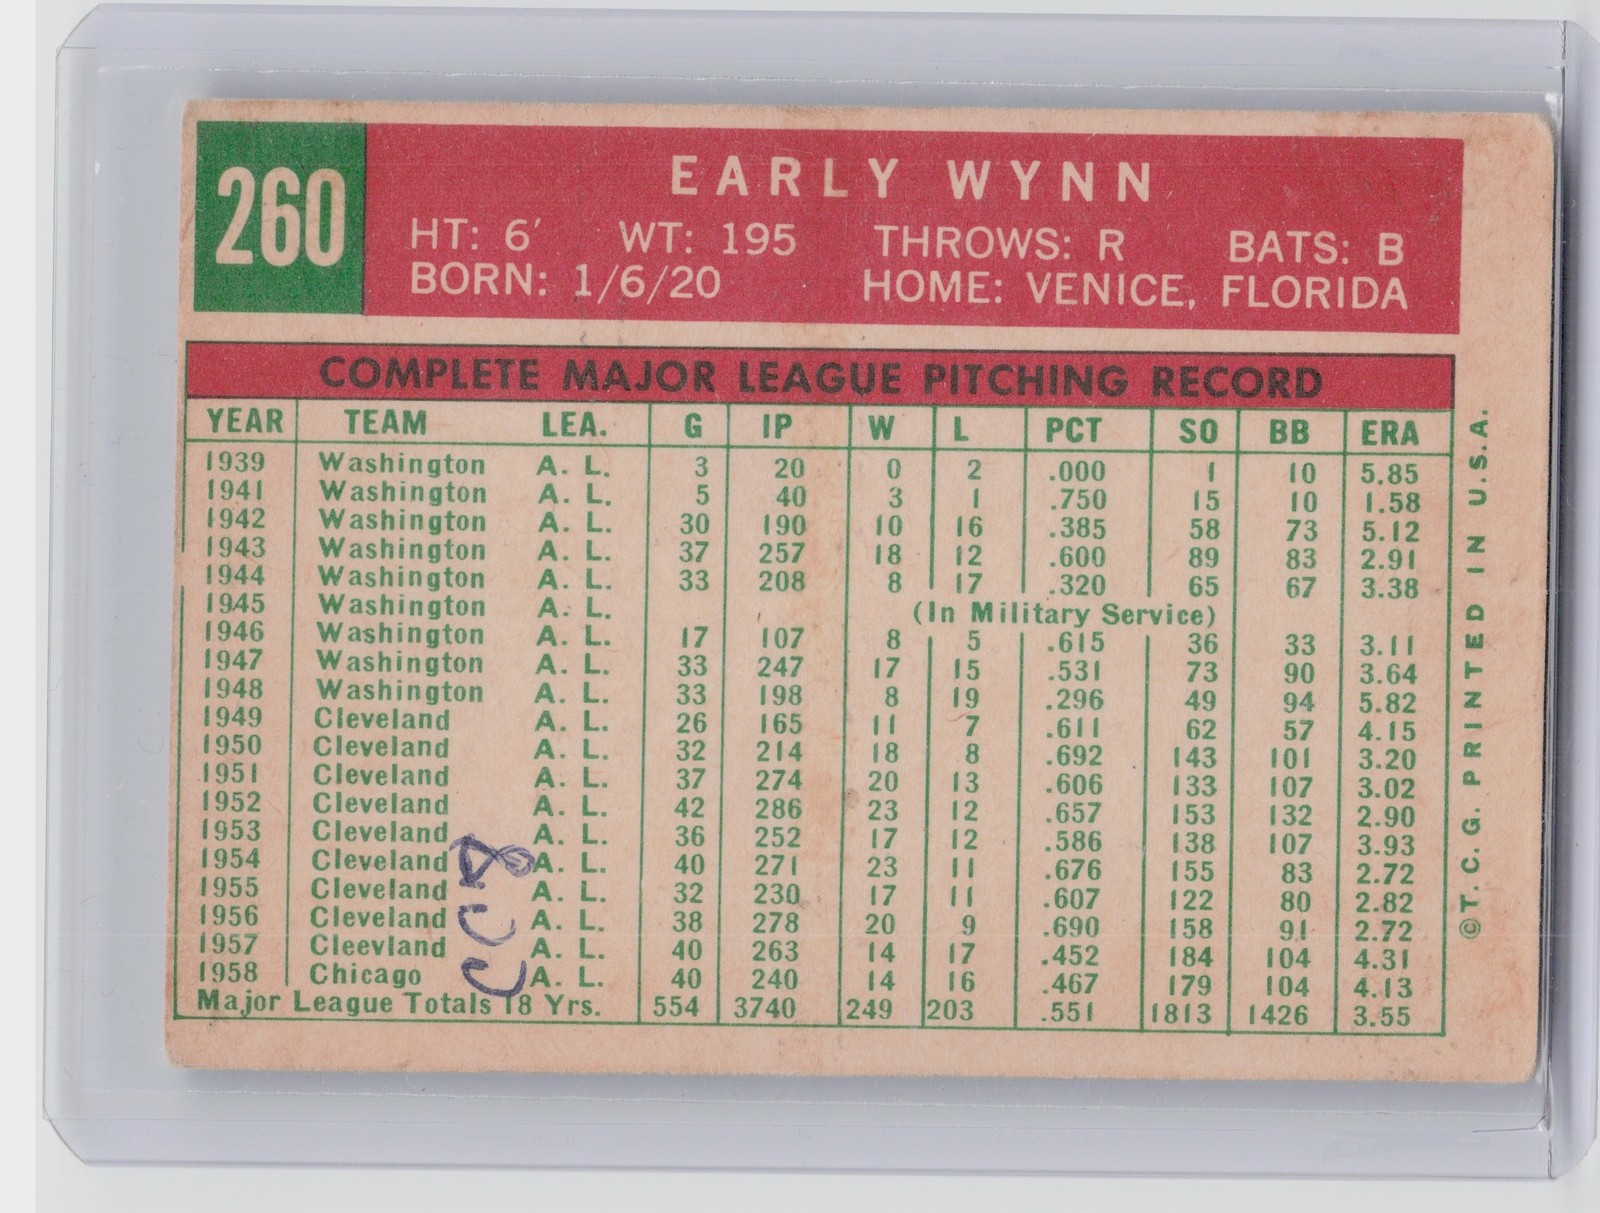 260
EARLY WYNN
HT: 6' WT: 195 THROWS: R BATS: B
BORN: 1/6/20 HOME: VENICE, FLORIDA
COMPLETE MAJOR LEAGUE PITCHING RECORD
YEAR TEAM LEA. G IP W L PCT SO BB ERA
1939 Washington A. L. 3 20 0 2 .000 1 10 5.85
1941 Washington A. L. 5 40 3 1 .750 15 10 1.58
1942 Washington A. L. 30 190 10 16 .385 58 73 5.12
1943 Washington A. L. 37 257 18 12 .600 89 83 2.91
1944 Washington A. L. 33 208 8 17 .320 65 67 3.38
1945 Washington A. L. (In Military Service)
1946 Washington A. L. 17 107 8 5 .615 36 33 3.11
1947 Washington A. L. 33 247 17 15 .531 73 90 3.64
1948 Washington A. L. 33 198 8 19 .296 49 94 5.82
1949 Cleveland A. L. 26 165 11 7 .611 62 57 4.15
1950 Cleveland A. L. 32 214 18 8 .692 143 101 3.20
1951 Cleveland A. L. 37 274 20 13 .606 133 107 3.02
1952 Cleveland A. L. 42 286 23 12 .657 153 132 2.90
1953 Cleveland A. L. 36 252 17 12 .586 138 107 3.93
1954 Cleveland A. L. 40 271 23 11 .676 155 83 2.72
1955 Cleveland A. L. 32 230 17 11 .607 122 80 2.82
1956 Cleveland A. L. 38 278 20 9 .690 158 91 2.72
1957 Cleevland A. L. 40 263 14 17 .452 184 104 4.31
1958 Chicago A. L. 40 240 14 16 .467 179 104 4.13
Major League Totals 18 Yrs. 554 3740 249 203 .551 1813 1426 3.55
©T.C.G. PRINTED IN U.S.A.